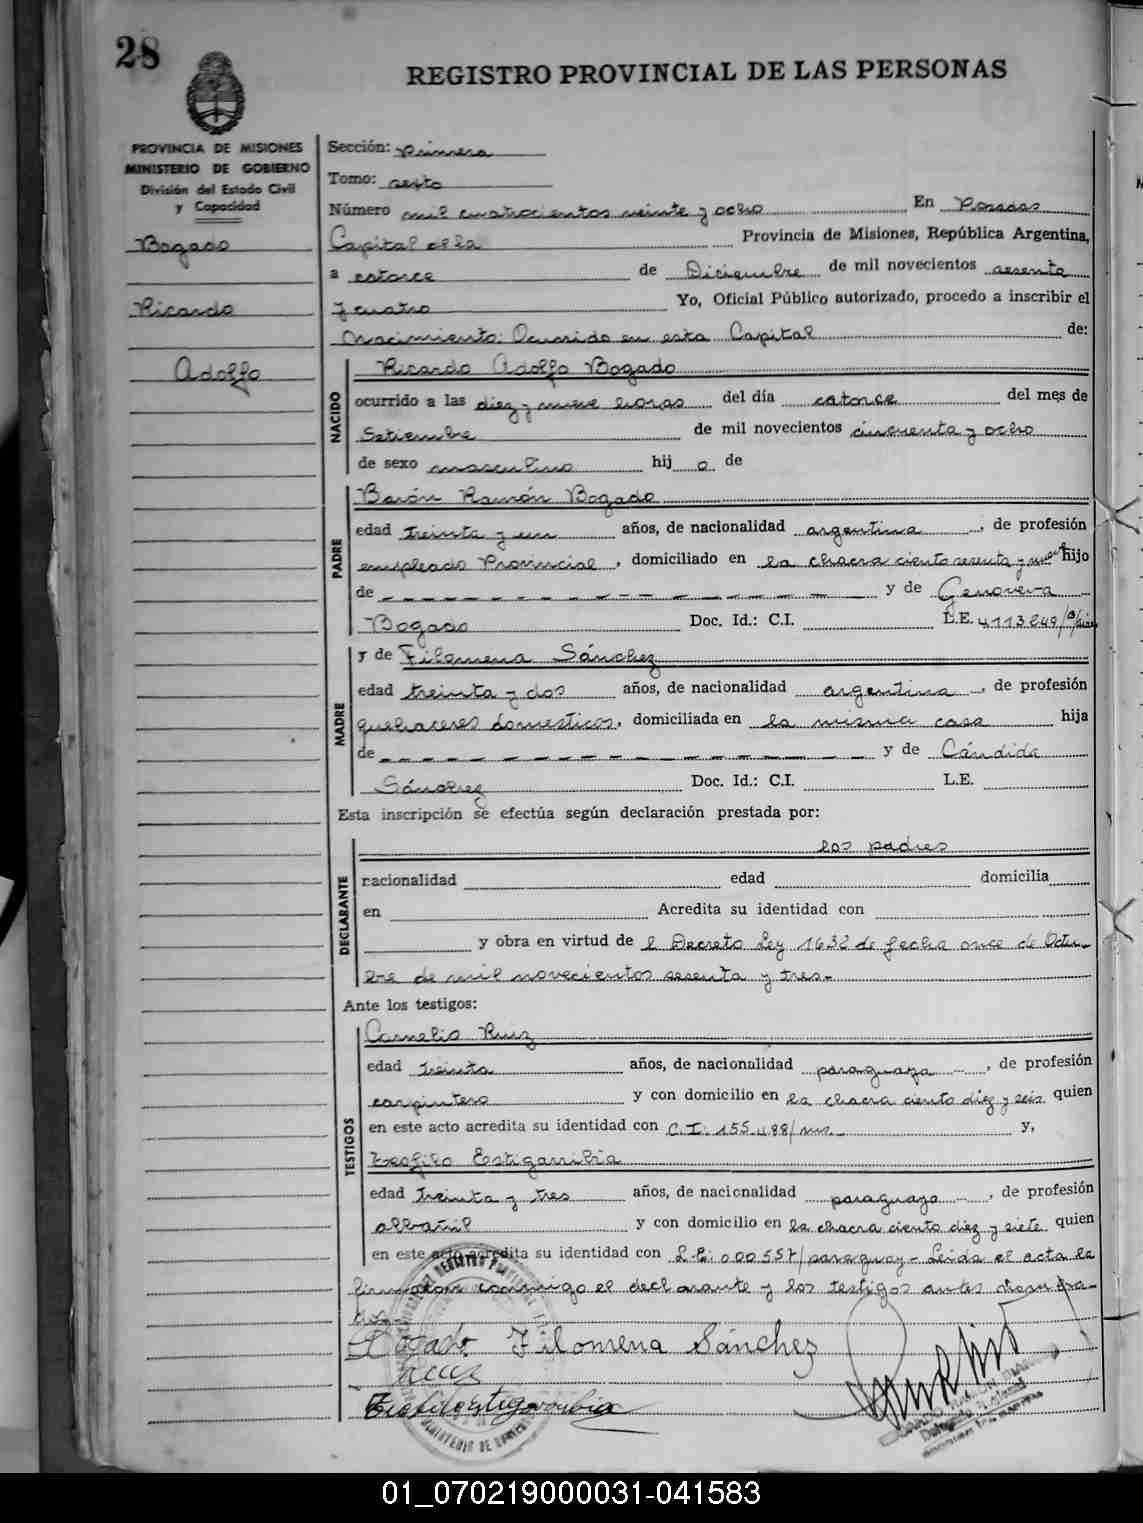 28
REGISTRO PROVINCIAL DE LAS PERSONAS
PROVINCIA DE MISIONES
MINISTERIO DE GOBIERNO
División del Estado Civil
y Capacidad
Bogado
Ricardo
Adolfo
Sección: Primera
Tomo: sexto
Número mil cuatrocientos veinte y ocho En Posadas
Capital de la Provincia de Misiones, República Argentina,
a catorce de Diciembre de mil novecientos sesenta
y cuatro Yo, Oficial Público autorizado, procedo a inscribir el
Nacimiento: Ocurrido en esta Capital de:
NACIDO
Ricardo Adolfo Bogado
ocurrido a las diez y nueve horas del día catorce del mes de
Setiembre de mil novecientos cincuenta y ocho
de sexo masculino hij o de
PADRE
Barón Ramón Bogado
edad treinta y un años, de nacionalidad argentina, de profesión
empleado Provincial, domiciliado en la chacra ciento sesenta y hijo
de y de Genoveva
Bogado Doc. Id.: C.I. L.E.
MADRE
y de Filomena Sánchez
edad treinta y dos años, de nacionalidad argentina, de profesión
quehaceres domesticos, domiciliada en la misma casa hija
de y de Cándida
Sánchez Doc. Id.: C.I. L.E.
Esta inscripción se efectúa según declaración prestada por:
DECLARANTE
los padres
nacionalidad edad domicilia
en Acredita su identidad con
y obra en virtud de l Decreto Ley 1632 de fecha once de Octu-
bre de mil novecientos sesenta y tres.-
Ante los testigos:
TESTIGOS
Cornelio Ruiz
edad treinta años, de nacionalidad paraguaya, de profesión
carpintero y con domicilio en la chacra ciento diez y seis quien
en este acto acredita su identidad con C.I. y,
Teofilo Estigarribia
edad treinta y tres años, de nacionalidad paraguaya, de profesión
albañil y con domicilio en la chacra ciento diez y siete quien
en este acto acredita su identidad con paraguay - Leida el acta la
firmaron conmigo el declarante y los testigos antes nombra-
dos.-
Bogado Filomena Sánchez
Ruiz
Teofilo Estigarribia
01_070219000031-041583